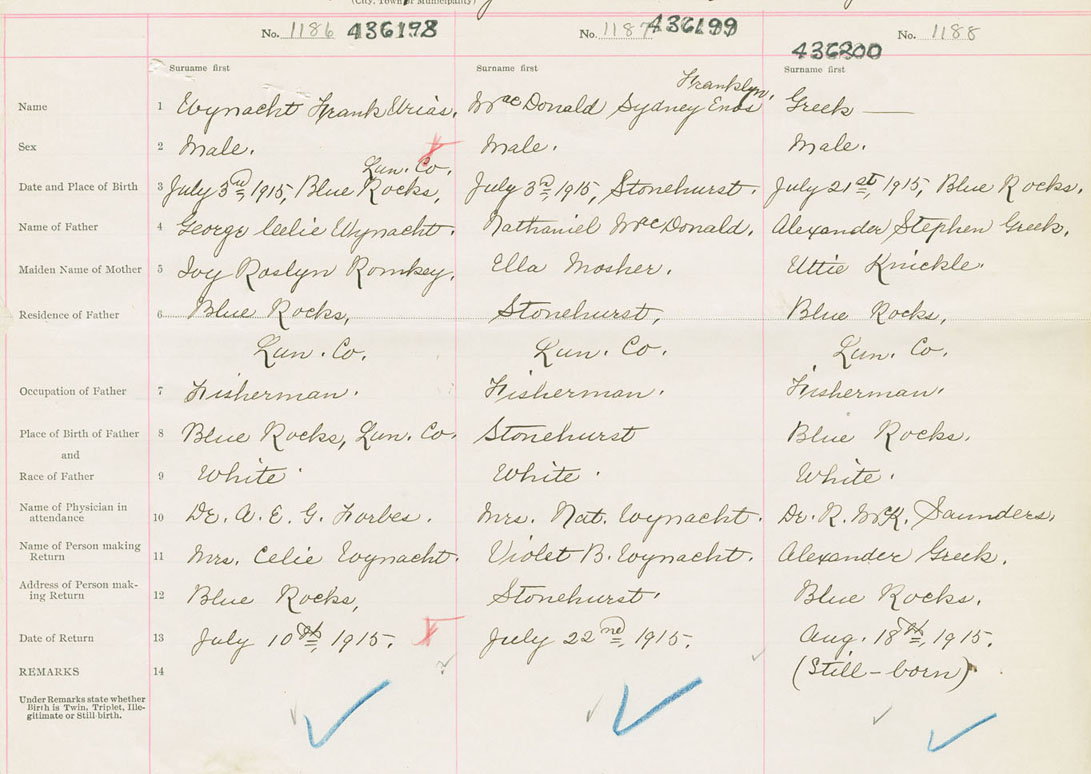 (City, Town or Municipality)
No. 1186 436198 No. 1187 436199 No. 1188
436200
Surname first Surname first Surname first
Franklyn,
Name 1 Wynacht Frank Urias, MacDonald Sydney Enos Greek —
Sex 2 Male. Male. Male.
Lun. Co.
Date and Place of Birth 3 July 3rd, 1915, Blue Rocks, July 3rd, 1915, Stonehurst. July 21st, 1915, Blue Rocks.
Name of Father 4 George Celie Wynacht. Nathaniel MacDonald. Alexander Stephen Greek.
Maiden Name of Mother 5 Ivy Roslyn Romkey. Ella Mosher. Uttie Knickle.
Residence of Father 6 Blue Rocks, Stonehurst, Blue Rocks,
Lun. Co. Lun. Co. Lun. Co.
Occupation of Father 7 Fisherman. Fisherman. Fisherman.
Place of Birth of Father 8 Blue Rocks, Lun. Co. Stonehurst Blue Rocks.
and
Race of Father 9 White White. White.
Name of Physician in
attendance 10 Dr. A. E. G. Forbes. Mrs. Nat. Wynacht. Dr. R. McK. Saunders.
Name of Person making
Return 11 Mrs. Celie Wynacht. Violet B. Wynacht. Alexander Greek.
Address of Person mak-
ing Return 12 Blue Rocks, Stonehurst. Blue Rocks.
Date of Return 13 July 10th, 1915. July 22nd, 1915. Aug. 18th, 1915.
REMARKS 14 (Still-born)
Under Remarks state whether
Birth is Twin, Triplet, Ille-
gitimate or Still birth.